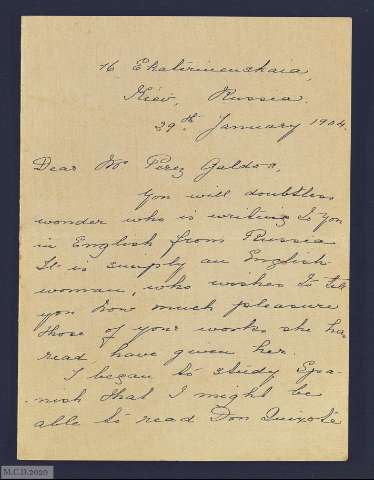 16 Ekaterinenskaia,
Kiev, Russia.
29th January 1904.
Dear Mr Perez Galdos,
You will doubtless
wonder who is writing to you
in English from Russia
It is simply an English
woman, who wishes to tell
you how much pleasure
those of your works she has
read have given her.
I began to study Spa-
nish that I might be
able to read Don Quixote
M.C.D.2020